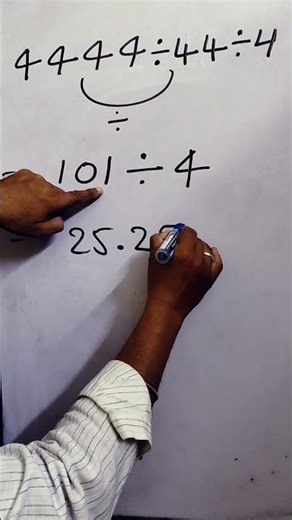 4444÷44÷4
÷
= 101÷4
= 25.25